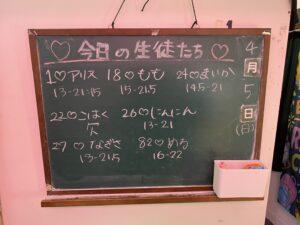 ♡今日の生徒たち♡
4月5日(日)
1♡アリス 18♡もも 24♡まいか
13-21:15 15-21.5 14.5-21
22♡こはく 26♡にんにん
欠 13-21
27♡なぎさ 82♡める
13-21.5 16-22